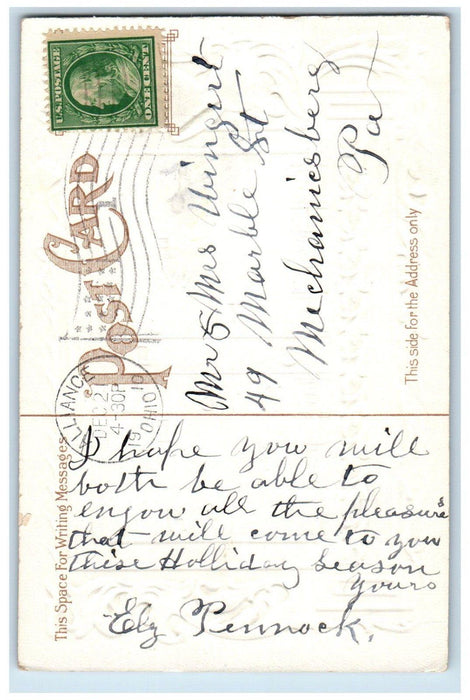 U.S. POSTAGE
ONE CENT
POST CARD
ALLIANCE
DEC 2
4-30P
19
OHIO
Mr & Mrs Wingert
49 Marble St
Mechanicsberg
Pa
This side for the Address only
This Space For Writing Messages
I hope you will
both be able to
enjou all the pleasure's
that will come to you
this Holliday season
yours
Elz Pennock.